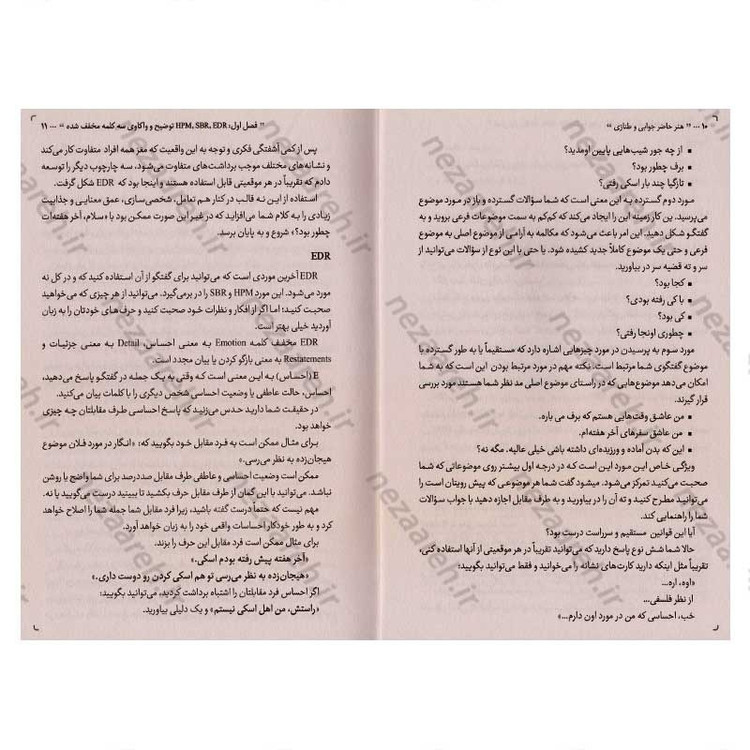 ۱۰ ... " هنر حاضر جوابی و طنازی "
• از چه جور شیب‌هایی پایین اومدید؟
• برف چطور بود؟
• تازگیا چند بار اسکی رفتی؟
مورد دوم گسترده به این معنی است که شما سؤالات گسترده و باز در مورد موضوع
می‌پرسید. این کار زمینه این را ایجاد می‌کند که کم‌کم به سمت موضوعات فرعی بروید و به
گفتگو شکل دهید. این امر باعث می‌شود که مکالمه به آرامی از موضوع اصلی به موضوع
فرعی و حتی یک موضوع کاملاً جدید کشیده شود. یا حتی با این نوع از سؤالات می‌توانید از
سر و ته قضیه سر در بیاورید.
• کجا بود؟
• با کی رفته بودی؟
• کی بود؟
• چطوری اونجا رفتی؟
مورد سوم به پرسیدن در مورد چیزهایی اشاره دارد که مستقیماً یا به طور گسترده با
موضوع گفتگوی شما مرتبط است. نکته مهم در مورد مرتبط بودن این است که به شما
امکان می‌دهد موضوع‌هایی که در راستای موضوع اصلی مد نظر شما هستند مورد بررسی
قرار گیرند.
• من عاشق وقت‌هایی هستم که برف می باره.
• من عاشق سفرهای آخر هفته‌ام.
• این که بدن آماده و ورزیده‌ای داشته باشی خیلی عالیه. مگه نه؟
ویژگی خاص این مورد این است که در درجه اول بیشتر روی موضوعاتی که شما
صحبت می‌کنید تمرکز می‌شود. میشود گفت شما هر موضوعی که پیش رویتان است را
می‌توانید مطرح کنید و ته آن را در بیاورید و به طرف مقابل اجازه دهید با جواب سؤالات
شما را راهنمایی کند.
آیا این قوانین مستقیم و سرراست درست بود؟
حالا شما شش نوع پاسخ دارید که می‌توانید تقریباً در هر موقعیتی از آنها استفاده کنی،
تقریباً مثل اینکه دارید کارت‌های نشانه را می‌خوانید و فقط می‌توانید بگویید:
«اوه، اره...
از نظر فلسفی...
خب، احساسی که من در مورد اون دارم...»
" فصل اول: HPM, SBR, EDR توضیح و واکاوی سه کلمه مخفف شده " ... ۱۱
پس از کمی آشفتگی فکری و توجه به این واقعیت که مغز همه افراد متفاوت کار می‌کند
و نشانه‌های مختلف موجب برداشت‌های متفاوت می‌شود، سه چارچوب دیگر را توسعه
دادم که تقریباً در هر موقعیتی قابل استفاده هستند و اینجا بود که EDR شکل گرفت.
استفاده از این نه قالب در کنار هم تعامل، شخصی‌سازی، عمق معنایی و جذابیت
زیادی را به کلام شما می‌افزاید که در غیر این صورت ممکن بود با «سلام، آخر هفته‌ات
چطور بود؟» شروع و به پایان برسد.
EDR
EDR آخرین موردی است که می‌توانید برای گفتگو از آن استفاده کنید که و در کل نه
مورد می‌شود. این مورد HPM و SBR را در برمی‌گیرد. می‌توانید از هر چیزی که می‌خواهید
صحبت کنید؛ اما اگر از افکار و نظرات خود صحبت کنید و حرف‌های خودتان را به زبان
آوردید خیلی بهتر است.
EDR مخفف کلمه Emotion به معنی احساس، Detail به معنی جزئیات و
Restatements به معنی بازگو کردن یا بیان مجدد است.
E (احساس) به این معنی است که وقتی به یک جمله در گفتگو پاسخ می‌دهید،
احساس، حالت عاطفی یا وضعیت احساسی شخص دیگری را با کلمات بیان می‌کنید.
در حقیقت شما دارید حدس می‌زنید که پاسخ احساسی طرف مقابلتان چه چیزی
خواهد بود.
برای مثال ممکن است به فرد مقابل خود بگویید که: «انگار در مورد فلان موضوع
هیجان‌زده به نظر می‌رسی.»
ممکن است وضعیت احساسی و عاطفی طرف مقابل صددرصد برای شما واضح یا روشن
نباشد. می‌توانید با این گمان از طرف مقابل حرف بکشید تا ببینید درست می‌گویید یا نه.
مهم نیست که حتماً درست گفته باشید، زیرا فرد مقابل شما جمله شما را اصلاح خواهد
کرد و به طور خودکار احساسات واقعی خود را به زبان خواهد آورد.
برای مثال ممکن است فرد مقابل این حرف را بزند.
«آخر هفته پیش رفته بودم اسکی.»
«هیجان‌زده به نظر می‌رسی تو هم اسکی کردن رو دوست داری.»
اگر احساس فرد مقابلتان را اشتباه برداشت کردید، می‌توانید بگویید:
«راستش، من اهل اسکی نیستم» و یک دلیلی بیاورید.
nezaareh.ir